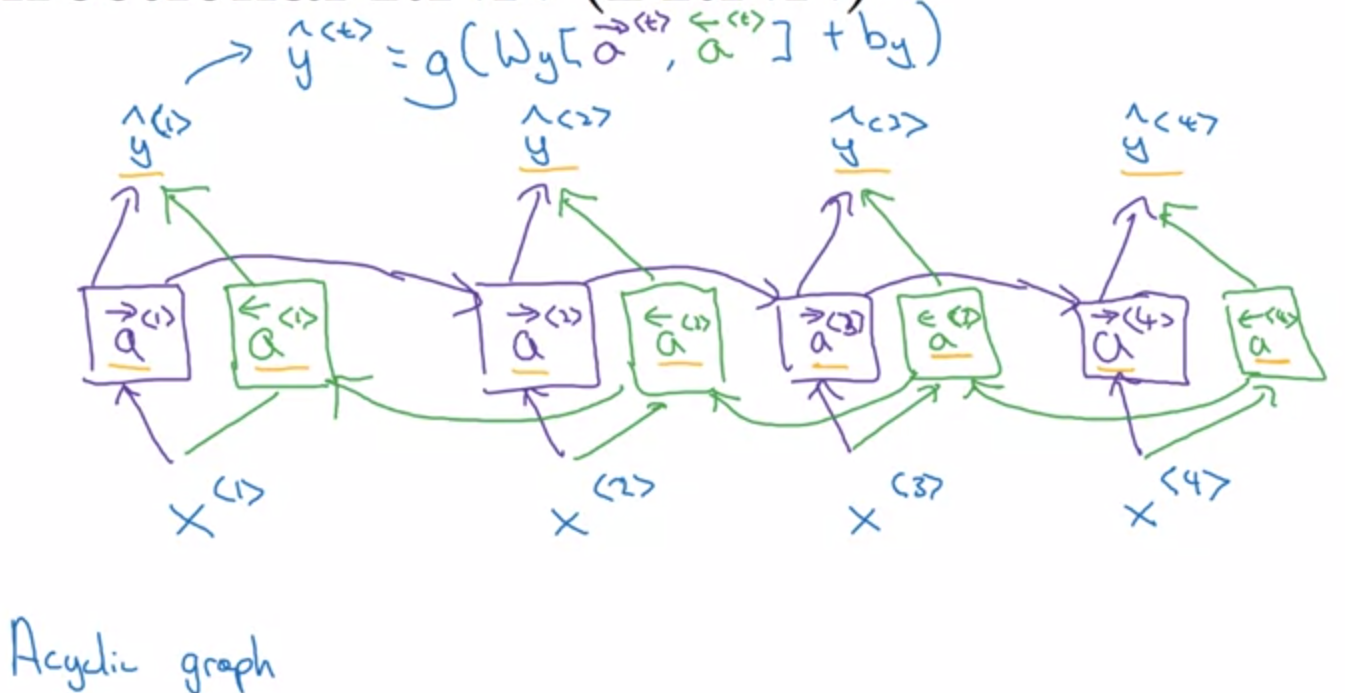 ŷ<t> = g(Wy[a→<t>, a←<t>] + by)
ŷ<1> ŷ<2> ŷ<3> ŷ<4>
a→<1> a←<1> a→<2> a←<2> a→<3> a←<3> a→<4> a←<4>
x<1> x<2> x<3> x<4>
Acyclic graph